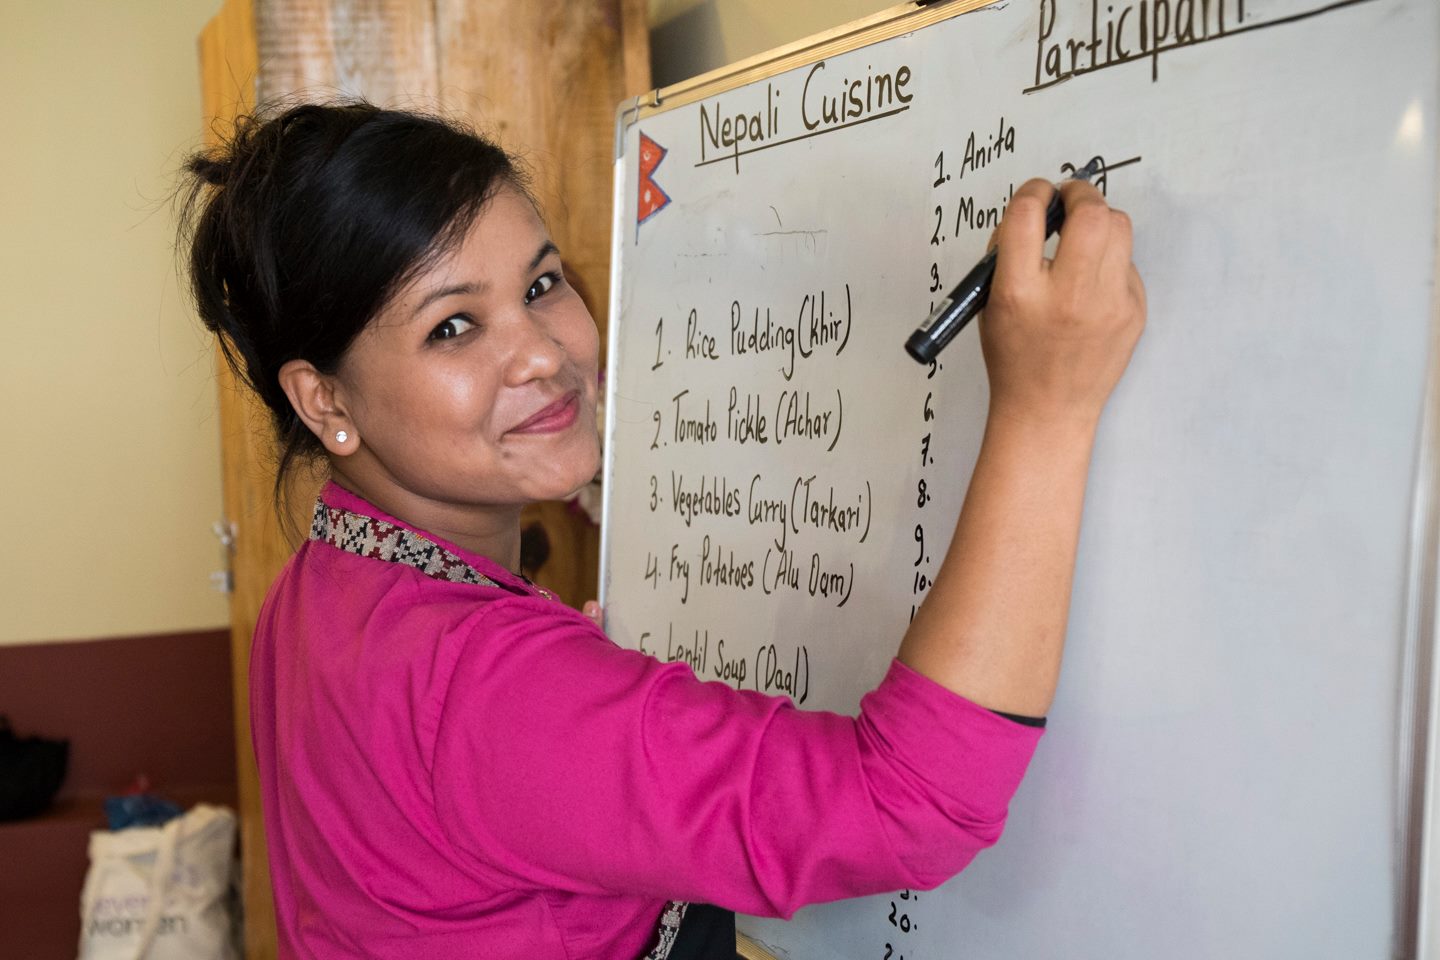 Nepali Cuisine
1. Rice Pudding (khir)
2. Tomato Pickle (Achar)
3. Vegetables Curry (Tarkari)
4. Fry Potatoes (Alu Dam)
5. Lentil Soup (Daal)
Participant
1. Anita
2.
3.
5.
6.
7.
8.
9.
10.
20.
women